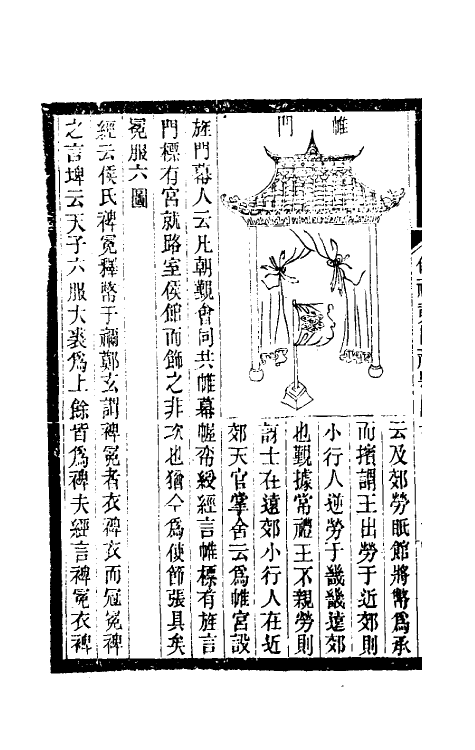 帷門
云及郊勞眂館將幣爲承
而擯謂王出勞于近郊則
小行人逆勞于畿畿遠郊
也覲據常禮王不親勞則
該士在遠郊小行人在近
郊天官掌舍云爲帷宮設
旌門幕人云凡朝覲會同共帷幕幄帟綬經言帷標有旌言
門標有宮就路室侯館而飾之非次也猶今爲使飾張具矣
冕服六圖
經云侯氏裨冕釋幣于禰鄭玄謂裨冕者衣裨衣而冠冕裨
之言埤云天子六服大裘爲上餘皆爲裨夫經言裨冕衣裨